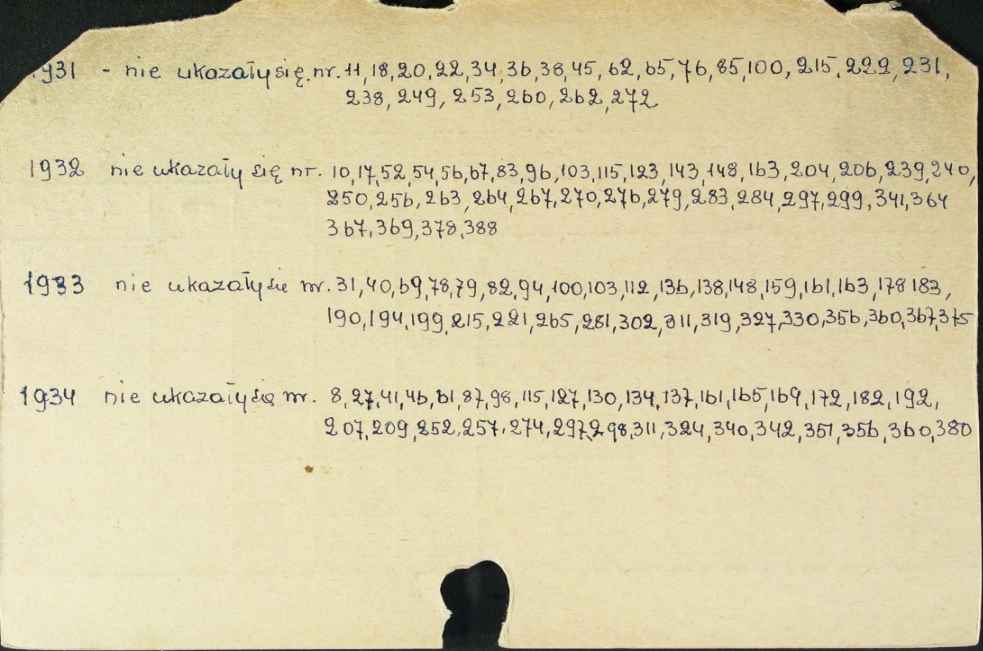 1931 - nie ukazały się nr. 11, 18, 20, 22, 34, 36, 38, 45, 62, 65, 76, 85, 100, 215, 222, 231,
238, 249, 253, 260, 262, 272
1932 nie ukazały się nr. 10, 17, 52, 54, 56, 67, 83, 96, 103, 115, 123, 143, 148, 163, 204, 206, 239, 240,
250, 256, 263, 264, 267, 270, 276, 279, 283, 284, 297, 299, 341, 364
367, 369, 378, 388
1933 nie ukazały sie nr. 31, 40, 69, 78, 79, 82, 94, 100, 103, 112, 136, 138, 148, 159, 161, 163, 178 183,
190, 194, 199, 215, 221, 265, 281, 302, 311, 319, 327, 330, 356, 360, 367, 375
1934 nie ukazały się nr. 8, 27, 41, 46, 61, 87, 98, 115, 127, 130, 134, 137, 161, 165, 169, 172, 182, 192,
207, 209, 252, 257, 274, 297, 298, 311, 324, 340, 342, 351, 356, 360, 380